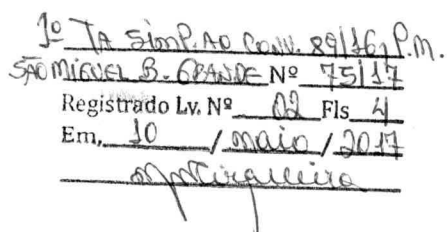 1º TA SimP. AO CONV. 89/16, P.M.
SÃO MIGUEL B. GRANDE Nº 75/17
Registrado Lv. Nº 02 Fls 4
Em, 10 / maio / 2017